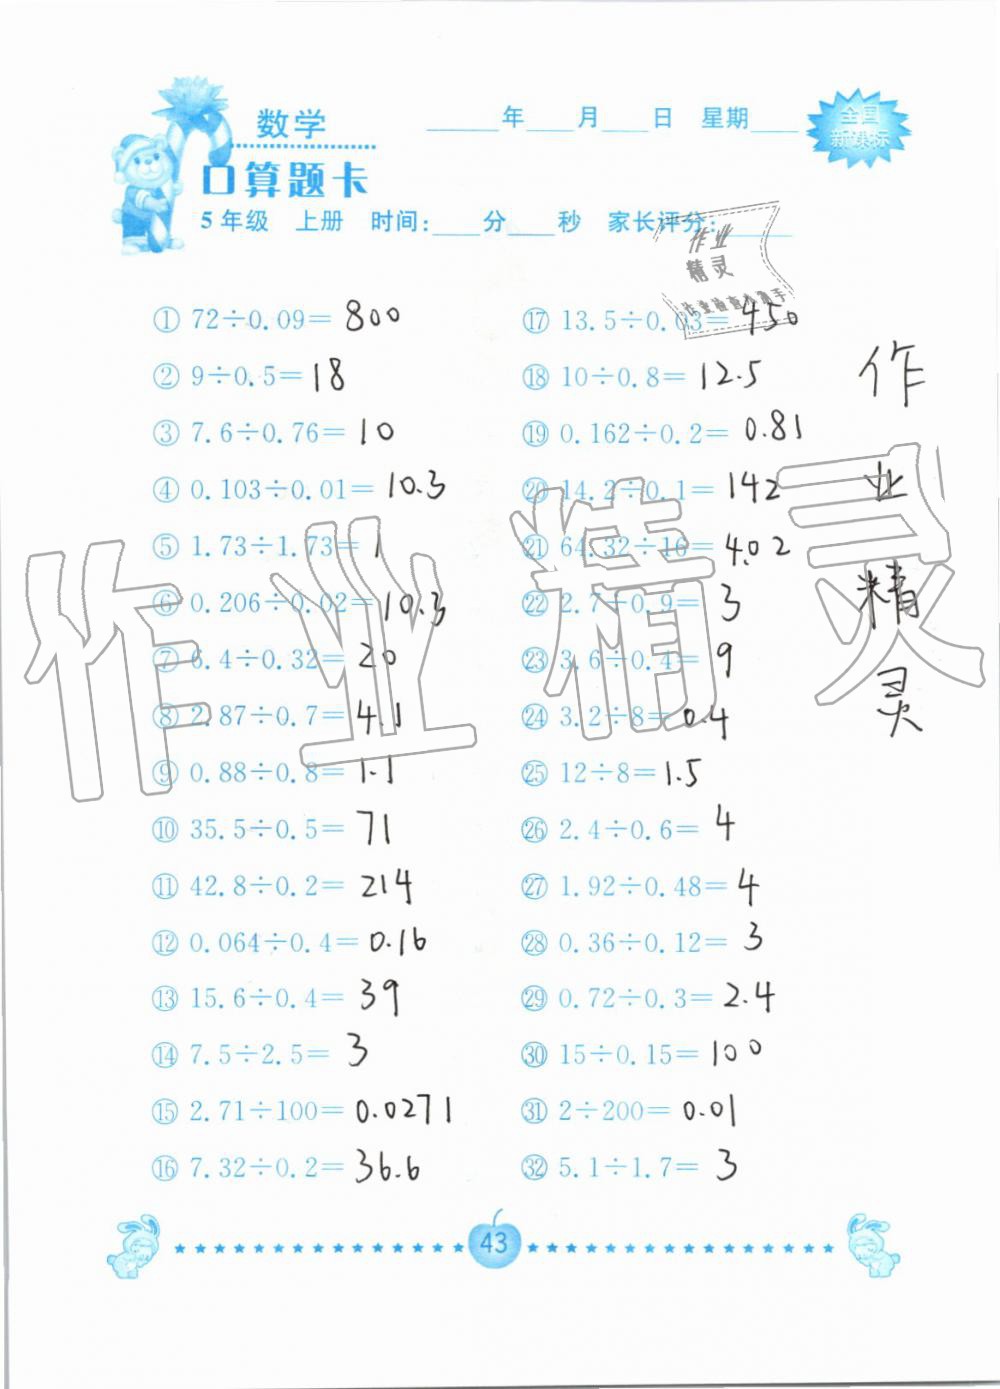 数学
____年____月____日 星期____
全国
新课标
口算题卡
5年级 上册 时间:____分____秒 家长评分:____
作业
精灵
① 72÷0.09=800
② 9÷0.5=18
③ 7.6÷0.76=10
④ 0.103÷0.01=10.3
⑤ 1.73÷1.73=1
⑥ 0.206÷0.02=10.3
⑦ 6.4÷0.32=20
⑧ 2.87÷0.7=4.1
⑨ 0.88÷0.8=1.1
⑩ 35.5÷0.5=71
⑪ 42.8÷0.2=214
⑫ 0.064÷0.4=0.16
⑬ 15.6÷0.4=39
⑭ 7.5÷2.5=3
⑮ 2.71÷100=0.0271
⑯ 7.32÷0.2=36.6
⑰ 13.5÷0.03=450
⑱ 10÷0.8=12.5
⑲ 0.162÷0.2=0.81
⑳ 14.2÷0.1=142
㉑ 64.32÷16=4.02
㉒ 2.7÷0.9=3
㉓ 3.6÷0.4=9
㉔ 3.2÷8=0.4
㉕ 12÷8=1.5
㉖ 2.4÷0.6=4
㉗ 1.92÷0.48=4
㉘ 0.36÷0.12=3
㉙ 0.72÷0.3=2.4
㉚ 15÷0.15=100
㉛ 2÷200=0.01
㉜ 5.1÷1.7=3
作
业
精
灵
作业精灵
43